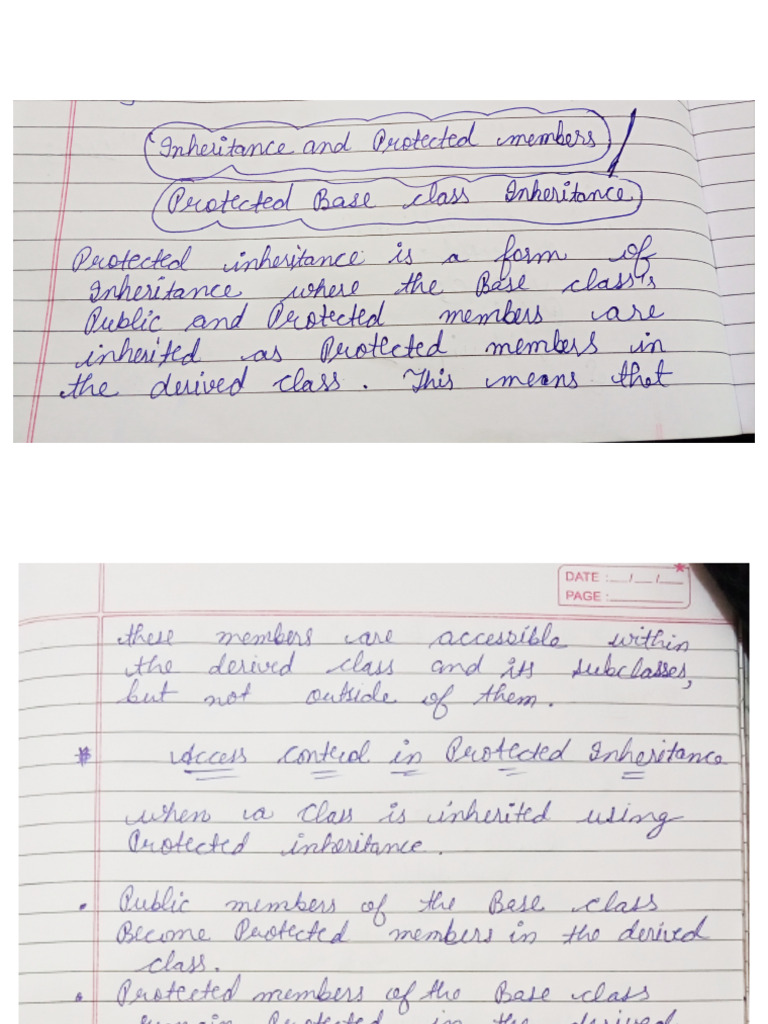 Inheritance and Protected members
Protected Base class Inheritance
Protected inheritance is a form of
Inheritance where the Base class's
Public and Protected members are
inherited as Protected members in
the derived class. This means that
DATE :__/__/__
PAGE :______
these members are accessible within
the derived class and its subclasses,
but not outside of them.
Access control in Protected Inheritance
when a Class is inherited using
Protected inheritance.
• Public members of the Base class
Become Protected members in the derived
class.
• Protected members of the Base class
remain Protected in the derived